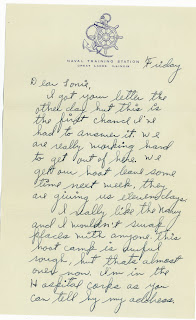 NAVAL TRAINING STATION
GREAT LAKES, ILLINOIS
Friday
Dear Tonie,
I got your letter the
other day but this is
the first chance I've
had to answer it. We
are really working hard
to get out of here. We
get our boot leave some
time next week, they
are giving us eleven days.
I really like the Navy
and I wouldn't swap
places with anyone. This
boot camp is awful
rough but that's almost
over now. I'm in the
Hospital Corps as you
can tell by my address.